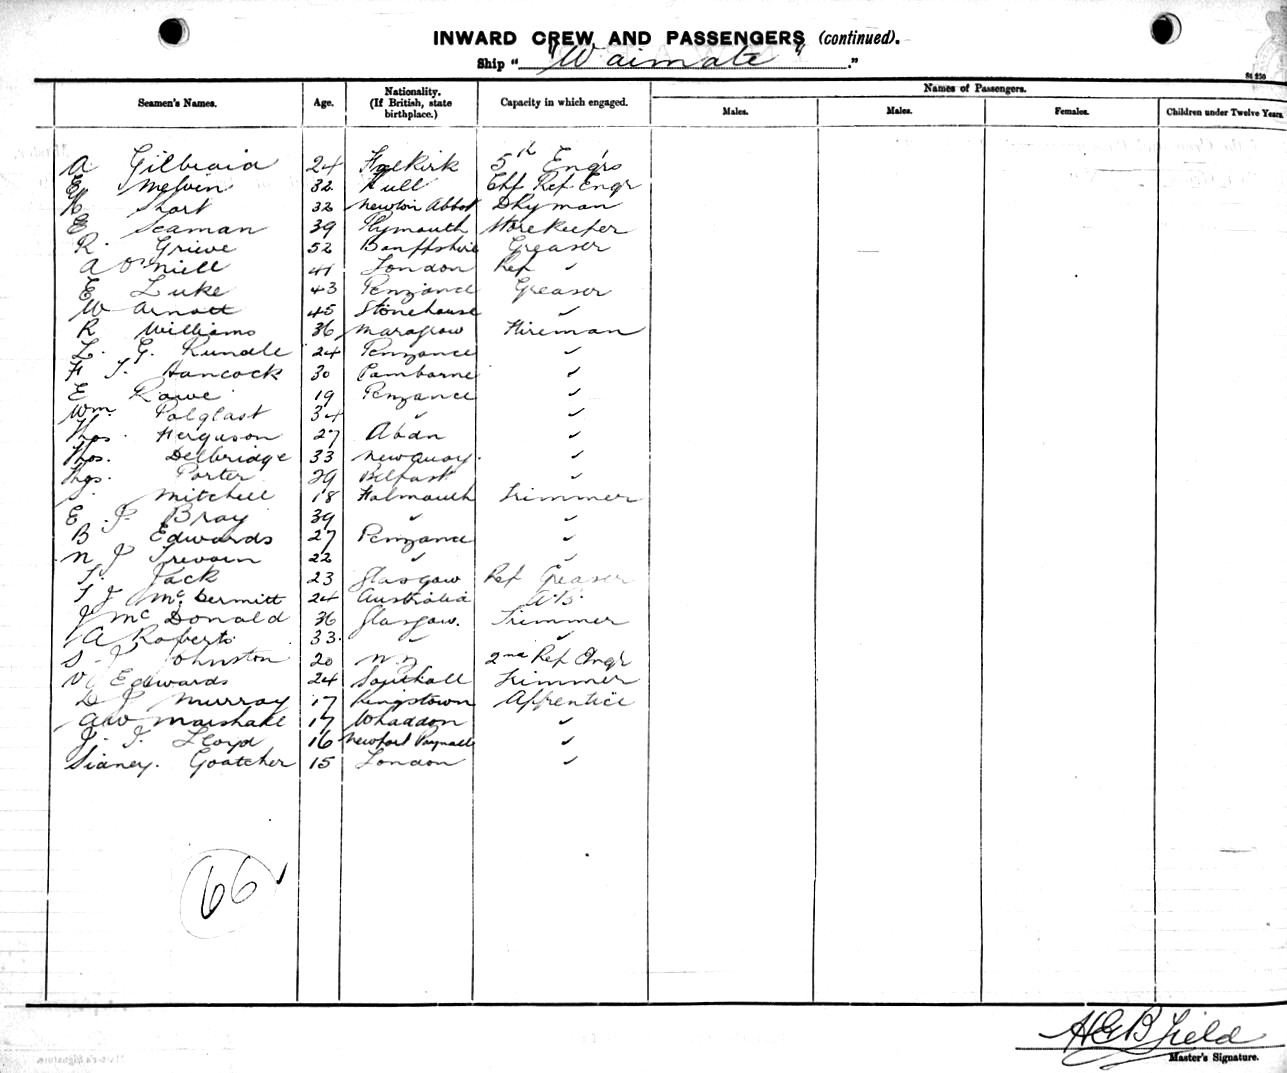 INWARD CREW AND PASSENGERS (continued).
Ship "Waimate."
Seamen's Names. Age. Nationality. (If British, state birthplace.) Capacity in which engaged. Names of Passengers.
Males. Males. Females. Children under Twelve Years.
A Gilbraid 24 Falkirk 5th Engrs
E Melvin 32 Hull Chf Ref Engr
H Short 32 Newton Abbot Dkyman
E Seaman 39 Plymouth Storekeeper
R. Grieve 52 Banffshire Greaser
A O'Niell 41 London Ref ✓
E Luke 43 Penzance Greaser
W Arnott 45 Stonehouse ✓
R Williams 36 Fireman
L. G. Rundle 24 Penzance ✓
F J. Hancock 30 Camborne ✓
E Rowe 19 Penzance ✓
Wm. Polglast 34 ✓ ✓
Thos. Ferguson 27 Abdn ✓
Thos. Delbridge 33 Newquay. ✓
Thos. Porter 29 Belfast ✓
Mitchell 18 Falmouth Trimmer
E. J. Bray 39 ✓ ✓
B Edwards 27 Penzance ✓
N J 22 ✓ ✓
T. Jack 23 Glasgow Ref Greaser
T J McDermitt 24 Australia A.B.
J McDonald 36 Glasgow. Trimmer
A Roberts 33. ✓ ✓
S J Johnston 20 N.Z 2nd Ref Engr
W Edwards 24 Southall Trimmer
D J Murray 17 Kingstown Apprentice
AW Marshall 17 Whaddon ✓
J. T. Lloyd 16 Newport Pagnall ✓
Sidney. Goatcher 15 London ✓
66 ✓
H G B Field
Master's Signature.